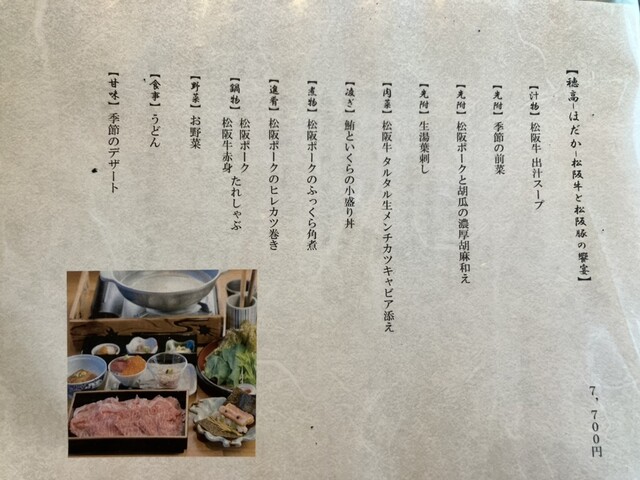 【穂高-ほだか-松阪牛と松阪豚の饗宴】
7,700円
【汁物】松阪牛 出汁スープ
【先附】季節の前菜
【先附】松阪ポークと胡瓜の濃厚胡麻和え
【先附】生湯葉刺し
【肉菜】松阪牛 タルタル生メンチカツキャビア添え
【凌ぎ】鮪といくらの小盛り丼
【煮物】松阪ポークのふっくら角煮
【進肴】松阪ポークのヒレカツ巻き
【鍋物】松阪ポーク
松阪牛赤身
たれしゃぶ
【野菜】お野菜
【食事】うどん
【甘味】季節のデザート